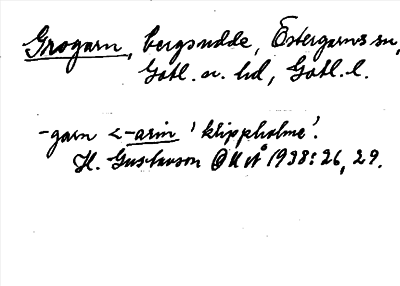 Grogarn, bergsudde, Östergarns sn,
Gotl. n. hd, Gotl. l.
-garn <-arin 'klippholme'.
H. Gustavson OUÅ 1938: 26, 29.